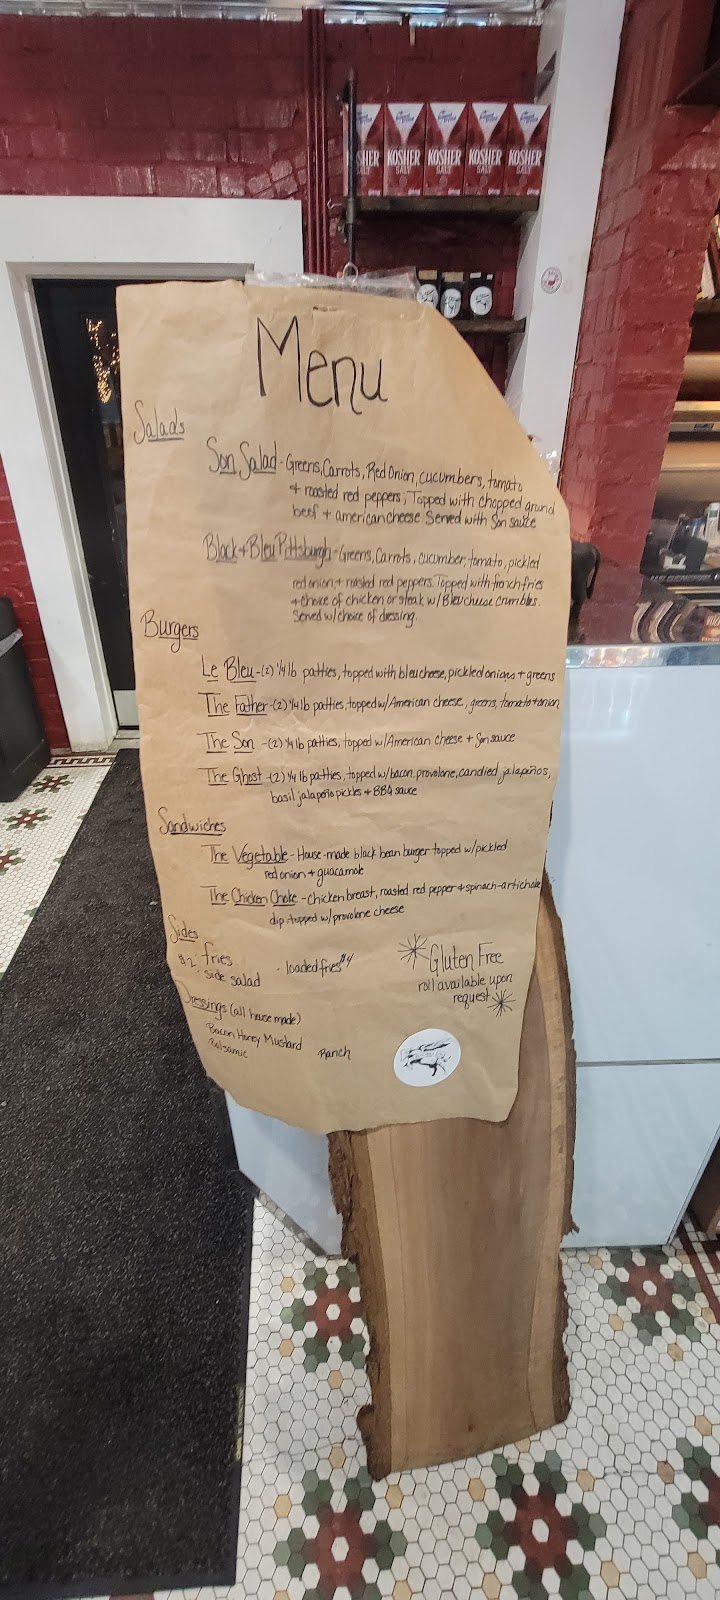 KOSHER SALT KOSHER SALT KOSHER SALT KOSHER SALT
Menu
Salads
Son Salad - Greens, Carrots, Red Onion, cucumbers, tomato
+ roasted red peppers; Topped with chopped ground
beef + american cheese Served with Son sauce
Black + Bleu Pittsburgh - Greens, Carrots, cucumber, tomato, pickled
red onion + roasted red peppers. Topped with french fries
+ choice of chicken or steak w/ Bleu cheese crumbles.
Served w/ choice of dressing.
Burgers
Le Bleu - (2) 1/4 lb patties, topped with bleu cheese, pickled onions + greens
The Father - (2) 1/4 lb patties, topped w/ American cheese, greens, tomato + onion
The Son - (2) 1/4 lb patties, topped w/ American cheese + Son sauce
The Ghost - (2) 1/4 lb patties, topped w/ bacon, provolone, candied jalapeños,
basil jalapeño pickles + BBQ sauce
Sandwiches
The Vegetable - House-made black bean burger topped w/ pickled
red onion + guacamole
The Chicken Choke - chicken breast, roasted red pepper + spinach-artichoke
dip topped w/ provolone cheese
Sides
$2 · fries · loaded fries $4
· side salad
Gluten Free
roll available upon
request
Dressings (all house made)
Bacon Honey Mustard
Balsamic Ranch